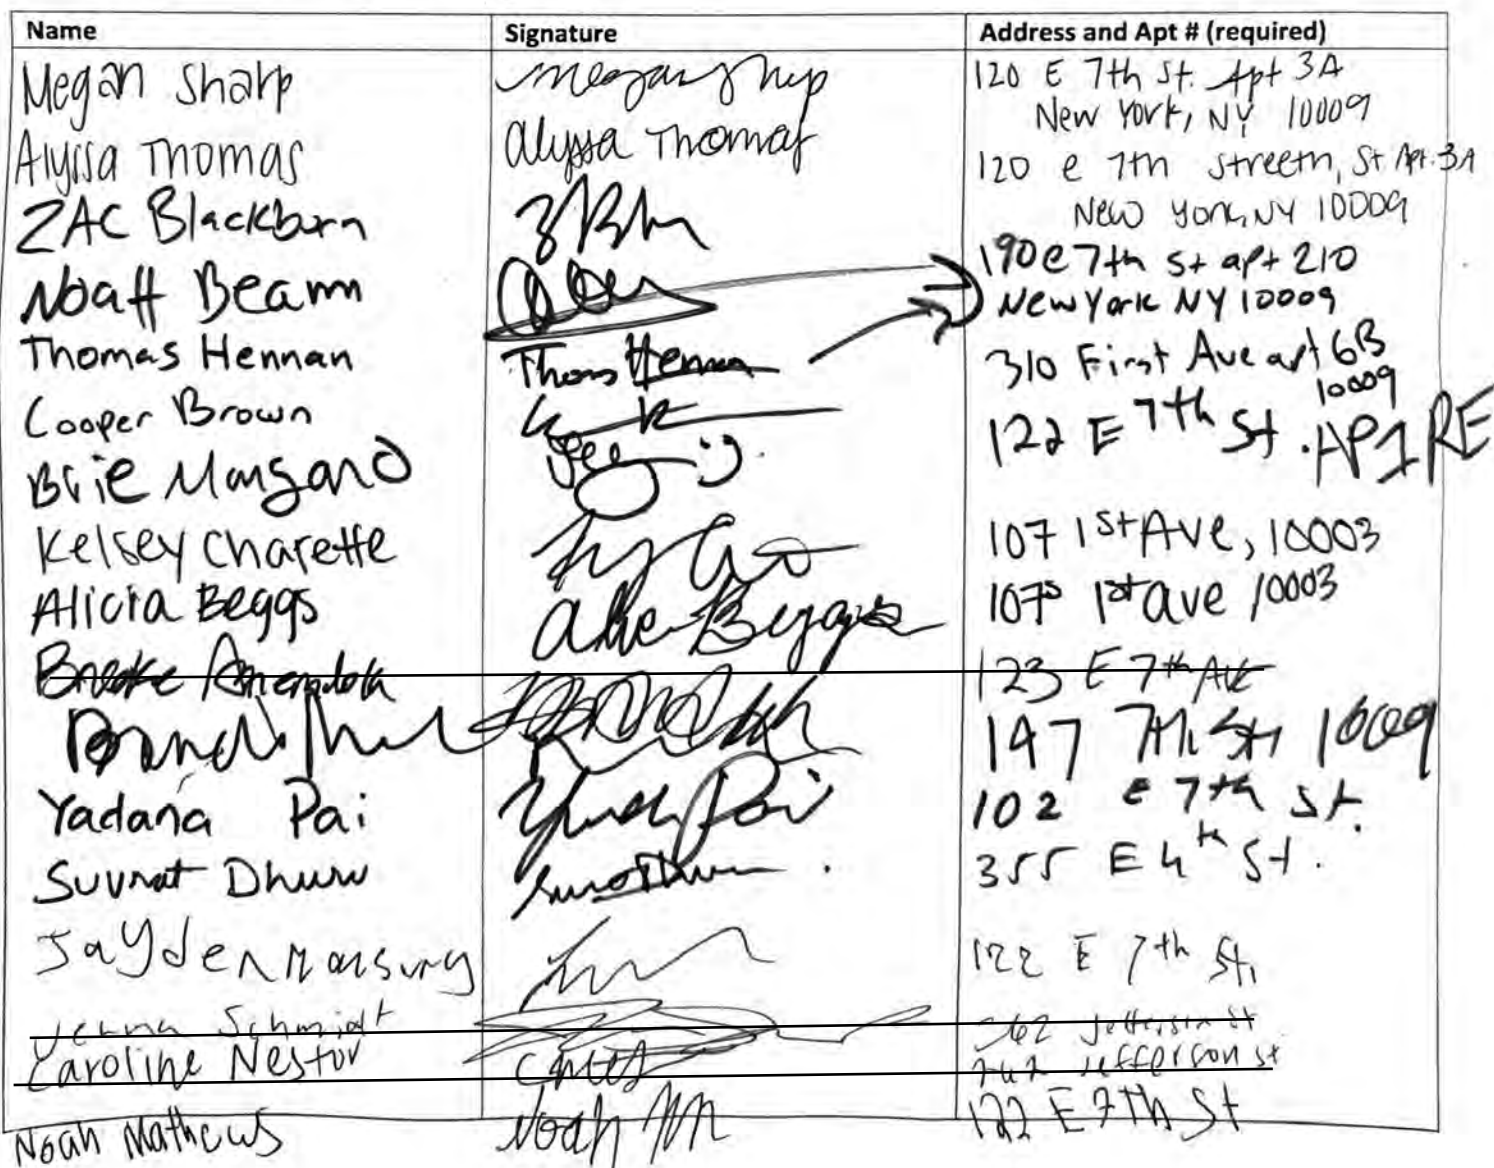 Name Signature Address and Apt # (required)
Megan Sharp Megan Sharp 120 E 7th St. Apt 3A
New York, NY 10009
Alyssa Thomas Alyssa Thomas 120 e 7th streetn, St Apt. 3A
New York, NY 10009
ZAC Blackburn
190 e 7th st apt 210
NoaH Beamn
New York NY 10009
Thomas Hennan Thomas Hennan 310 First Ave apt 6B
10009
Cooper Brown 122 E 7th St. AP1RE
Brie Mangano :)
Kelsey Charette 107 1st Ave, 10003
Alicia Beggs Beggs 107 1st ave 10003
Brooke 123 E 7th Ave
147 7th St, 10009
Yadana Pai Pai 102 e 7th St.
Suvrat Dhuru 355 E 4th St.
Jayden 122 E 7th St,
Jenna Schmidt 262 Jefferson St
Caroline Nestor 262 Jefferson St
Noah Mathews Noah 122 E 7th St